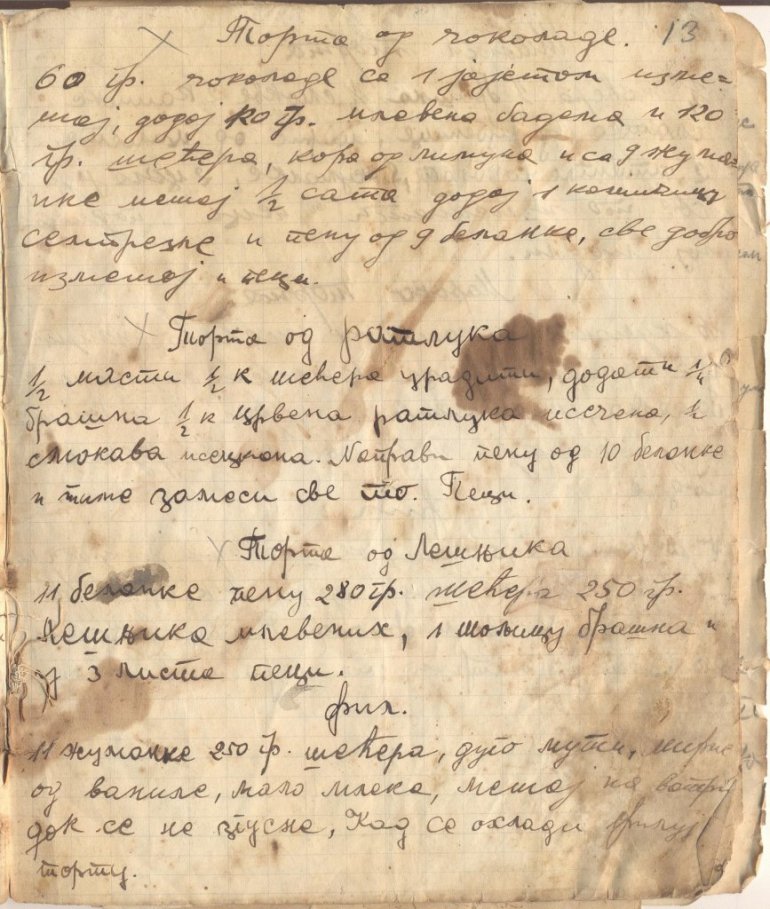 Торта од чоколаде. 13
60 гр. чоколаде са 1 јајетом изме=
шај, додај 120 гр. млевена бадема и 120
гр. шећера, кора од лимуна и са 9 жума=
нке мешај 1/2 сата додај 1 кашичицу
и пену од 9 беланке, све добро
измешај и пеци.
Торта од ратлука
1/2 масти 1/2 к шећера урадити, додати 1/4
брашна 1/2 к црвена ратлука исечена, 1/2
смокава исецкана. Направи пену од 10 беланке
и тиме замеси све то. Пеци.
Торта од Лешњика
11 беланке пену 280 гр. шећера 250 гр.
Лешњика млевених, 1 шољицу брашна и
у 3 листа пеци.
фил.
11 жуманке 250 гр. шећера, дуго мути, мирис
од ваниле, мало млека, мешај на ватри
док се не згусне, Кад се охлади филуј
торту.